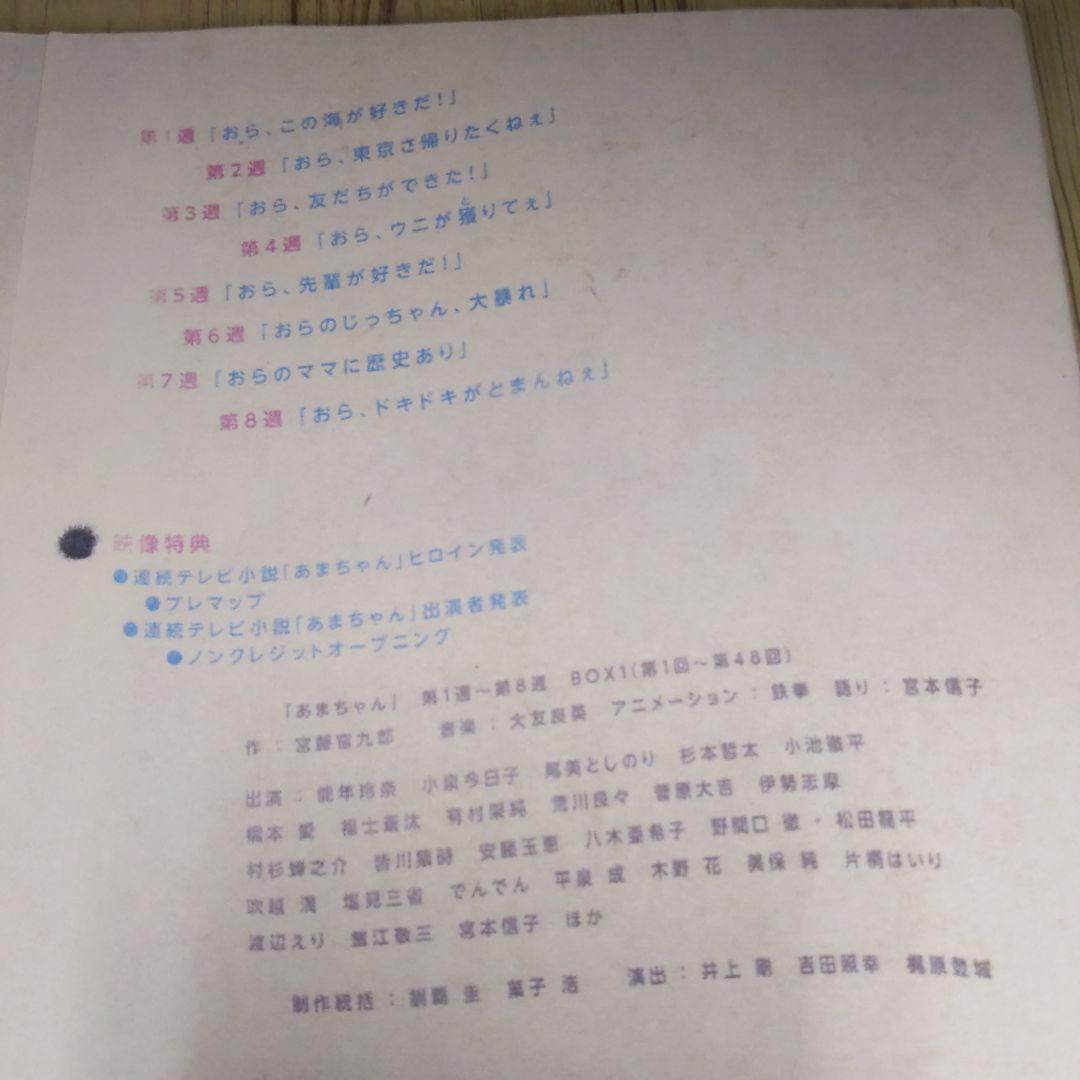 第1週「おら、この海が好きだ!」
第2週「おら、東京さ帰りたくねぇ」
第3週「おら、友だちができた!」
第4週「おら、ウニが獲りてぇ」
と
第5週「おら、先輩が好きだ!」
第6週「おらのじっちゃん、大暴れ」
第7週「おらのママに歴史あり」
第8週「おら、ドキドキがとまんねぇ」
映像特典
●連続テレビ小説「あまちゃん」ヒロイン発表
●プレマップ
●連続テレビ小説「あまちゃん」出演者発表
●ノンクレジットオープニング
「あまちゃん」 第1週~第8週 BOX1(第1回~第48回)
作:宮藤官九郎 音楽:大友良英 アニメーション:鉄拳 語り:宮本信子
出演:能年玲奈 小泉今日子 尾美としのり 杉本哲太 小池徹平
橋本 愛 福士蒼汰 有村架純 荒川良々 菅原大吉 伊勢志摩
村杉蝉之介 皆川猿時 安藤玉恵 八木亜希子 野間口 徹・松田龍平
吹越 満 塩見三省 でんでん 平泉 成 木野 花 美保 純 片桐はいり
渡辺えり 蟹江敬三 宮本信子 ほか
制作統括:訓覇 圭 菓子 浩 演出:井上 剛 吉田照幸 梶原登城